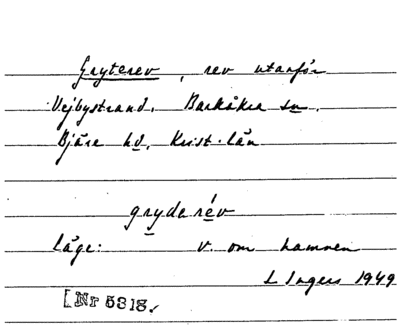 Gryterev, rev utanför
Vejbystrand, Barkåkra sn.
Bjäre hd, Krist. län
gryderév
läge: v. om hamnen
L Ingers 1949
[Nr 5318.